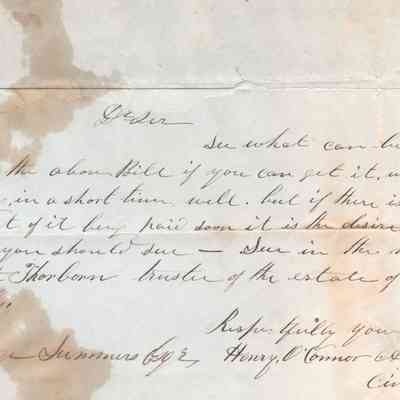 Dr Sir
See what can be
the above Bill if you can get it,
in a short time, well. but if there is
of it being paid soon it is the desire
you should sue — Sue in the
Thorborn trustee of the estate of
Respectfully you
Summers Esq Henry, O'Connor &
Cin